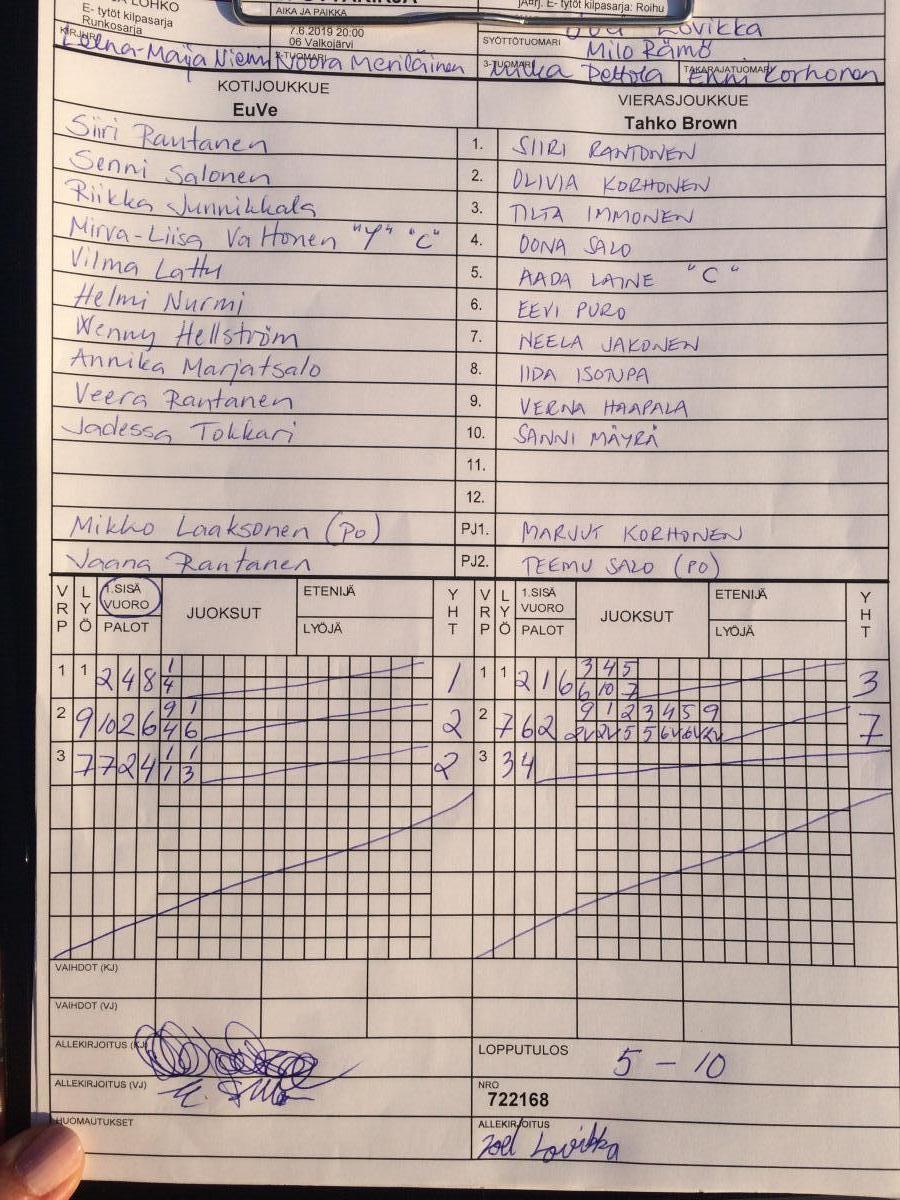 LOHKO
E- tytöt kilpasarja
Runkosarja
AIKA JA PAIKKA
7.6.2019 20:00
06 Valkojärvi
Järj. E- tytöt kilpasarja: Roihu
Lovikka
SYÖTTÖTUOMARI
Milo Rämö
KIRJURI
-Maija Niemi
2-TUOMARI
Noora Meriläinen
3-TUOMARI
TAKARAJATUOMARI
Enni Korhonen
KOTIJOUKKUE
EuVe
VIERASJOUKKUE
Tahko Brown
Siiri Rantanen 1. SIIRI RANTONEN
Senni Salonen 2. OLIVIA KORHONEN
Riikka Junnikkala 3. TILTA IMMONEN
Mirva-Liisa Valtonen "Y" "C" 4. OONA SALO
Vilma Lattu 5. AADA LAINE "C"
Helmi Nurmi 6. EEVI PURO
Wenny Hellström 7. NEELA JAKONEN
Annika Marjatsalo 8. IIDA ISOTUPA
Veera Rantanen 9. VERNA HAAPALA
Jadessa Tokkari 10. SANNI MÄYRÄ
11.
12.
Mikko Laaksonen (PO) PJ1. MARJUT KORHONEN
Jaana Rantanen PJ2. TEEMU SALO (PO)
VRP LYÖ 1.SISÄ VUORO PALOT JUOKSUT ETENIJÄ LYÖJÄ YHT VRP LYÖ 1.SISÄ VUORO PALOT JUOKSUT ETENIJÄ LYÖJÄ YHT
1 1 2 4 8 1 1 1 1 2 1 6 3 4 5 3
4 6 10 7
2 9 10 2 6 9 1 2 2 7 6 2 9 1 2 3 4 5 9 7
4 6 2V 2V 5 5 6V 6V
3 7 7 2 4 1 1 2 3 3 4
1 3
VAIHDOT (KJ)
VAIHDOT (VJ)
ALLEKIRJOITUS (KJ)
LOPPUTULOS 5 - 10
ALLEKIRJOITUS (VJ)
NRO
722168
HUOMAUTUKSET
ALLEKIRJOITUS
Joel Lovikka